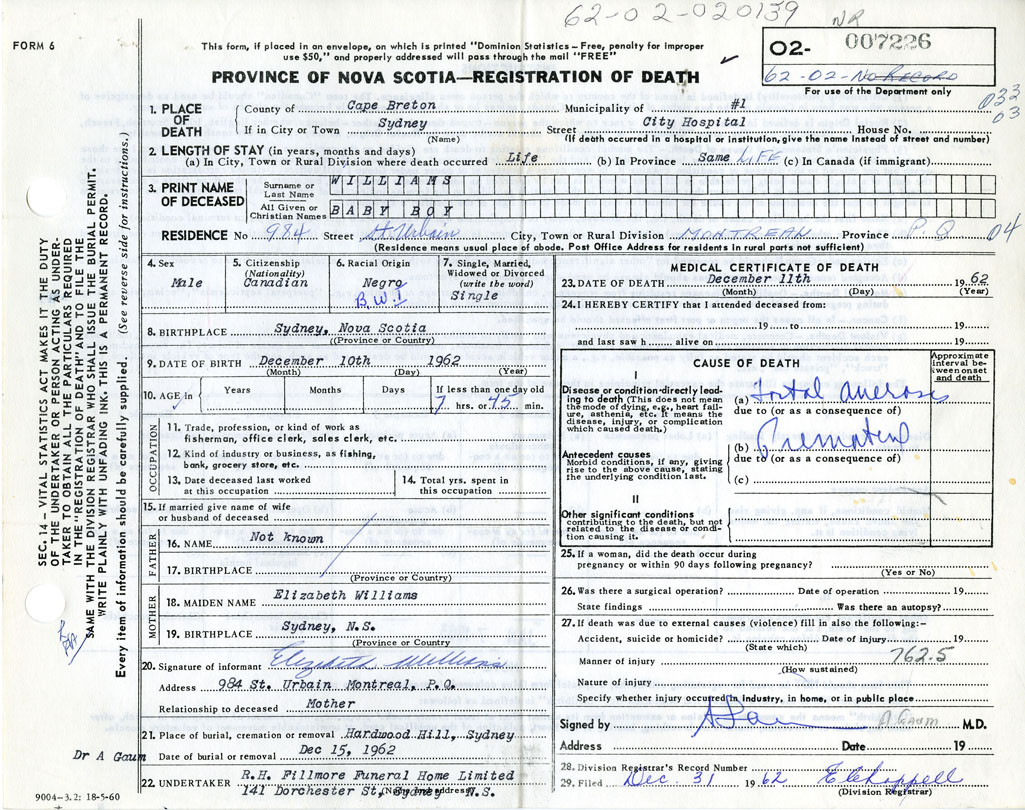 62-02-020139 NR
FORM 6
This form, if placed in an envelope, on which is printed "Dominion Statistics – Free, penalty for improper
use $50," and properly addressed will pass through the mail "FREE"
PROVINCE OF NOVA SCOTIA—REGISTRATION OF DEATH
O2- 007226
62-02-No RECORD
For use of the Department only
033
03
1. PLACE OF DEATH { County of Cape Breton Municipality of #1
If in City or Town Sydney Street City Hospital House No.
(Name) (If death occurred in a hospital or institution, give the name instead of street and number)
2. LENGTH OF STAY (in years, months and days)
(a) In City, Town or Rural Division where death occurred Life (b) In Province Same LIFE (c) In Canada (if immigrant)
3. PRINT NAME OF DECEASED
Surname or Last Name WILLIAMS
All Given or Christian Names BABY BOY
RESIDENCE No 984 Street St Urbain City, Town or Rural Division MONTREAL Province P.Q 04
(Residence means usual place of abode. Post Office Address for residents in rural parts not sufficient)
4. Sex
Male
5. Citizenship
(Nationality)
Canadian
6. Racial Origin
Negro
B.W.I
7. Single, Married,
Widowed or Divorced
(write the word)
Single
8. BIRTHPLACE Sydney, Nova Scotia
((Province or Country)
9. DATE OF BIRTH December 10th 1962
(Month) (Day) (Year)
10. AGE in Years Months Days If less than one day old
7 hrs. or 45 min.
OCCUPATION
11. Trade, profession, or kind of work as
fisherman, office clerk, sales clerk, etc.
12. Kind of industry or business, as fishing,
bank, grocery store, etc.
13. Date deceased last worked
at this occupation
14. Total yrs. spent in
this occupation
15. If married give name of wife
or husband of deceased
FATHER
16. NAME Not known
17. BIRTHPLACE
(Province or Country)
MOTHER
18. MAIDEN NAME Elizabeth Williams
19. BIRTHPLACE Sydney, N.S.
(Province or Country)
20. Signature of informant Elizabeth Williams
Address 984 St. Urbain Montreal, P.Q.
Relationship to deceased Mother
21. Place of burial, cremation or removal Hardwood Hill, Sydney
Dr A Gaum Date of burial or removal Dec 15, 1962
22. UNDERTAKER R.H. Fillmore Funeral Home Limited
141 Dorchester St, Sydney N.S.
(Name and address)
9004—3.2: 18-5-60
MEDICAL CERTIFICATE OF DEATH
23. DATE OF DEATH December 11th 1962
(Month) (Day) (Year)
24. I HEREBY CERTIFY that I attended deceased from:
19 to 19
and last saw h alive on 19
CAUSE OF DEATH
Approximate
interval be-
tween onset
and death
I
Disease or condition directly lead-
ing to death (This does not mean
the mode of dying, e.g., heart fail-
ure, asthenia, etc. It means the
disease, injury, or complication
which caused death.)
(a)
due to (or as a consequence of)
Antecedent causes
Morbid conditions, if any, giving
rise to the above cause, stating
the underlying condition last.
(b)
due to (or as a consequence of)
(c)
II
Other significant conditions
contributing to the death, but not
related to the disease or condi-
tion causing it.
25. If a woman, did the death occur during
pregnancy or within 90 days following pregnancy?
(Yes or No)
26. Was there a surgical operation? Date of operation 19
State findings Was there an autopsy?
27. If death was due to external causes (violence) fill in also the following:-
Accident, suicide or homicide? Date of injury 19
(State which)
Manner of injury 762.5
(How sustained)
Nature of injury
Specify whether injury occurred in industry, in home, or in public place
Signed by A Gaum M.D.
Address Date 19
28. Division Registrar's Record Number
29. Filed Dec. 31 1962 E Chappell
(Division Registrar)
SEC. 14 – VITAL STATISTICS ACT MAKES IT THE DUTY
OF THE UNDERTAKER OR PERSON ACTING AS UNDER-
TAKER TO OBTAIN ALL THE PARTICULARS REQUIRED
IN THE "REGISTRATION OF DEATH" AND TO FILE THE
SAME WITH THE DIVISION REGISTRAR WHO SHALL ISSUE THE BURIAL PERMIT.
WRITE PLAINLY WITH UNFADING INK. THIS IS A PERMANENT RECORD.
Every item of information should be carefully supplied. (See reverse side for instructions.)